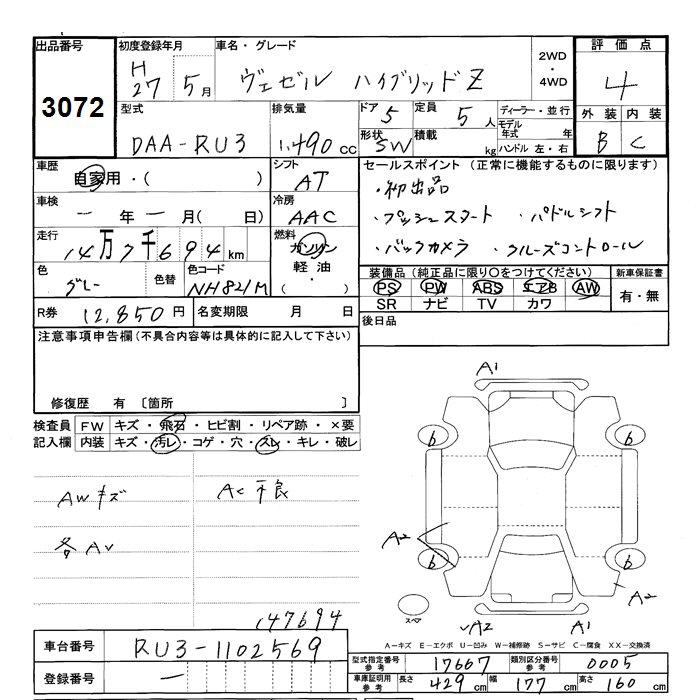 出品番号
3072
初度登録年月
H
27 5月
車名・グレード
ヴェゼル ハイブリッドZ
2WD
・
4WD
評価点
4
外装 内装
B C
型式
DAA-RU3
排気量
1,490 cc
ドア 5
定員 5 人
形状 SW
積載 kg
ディーラー・並行
モデル
年式 年
ハンドル 左・右
車歴
自家用・( )
シフト
AT
車検
一 年 一 月( 日)
冷房
AAC
走行
14万7千694km
燃料
ガソリン
軽油・
( )
色
グレー
色替
色コード
NH821M
R券 12,850円
名変期限 月 日
セールスポイント (正常に機能するものに限ります)
・初出品
・プッシュスタート ・パドルシフト
・バックカメラ ・クルーズコントロール
装備品(純正品に限り〇をつけてください)
PS PW ABS エアB AW
SR ナビ TV カワ
新車保証書
有・無
後日品
注意事項申告欄(不具合内容等は具体的に記入して下さい)
修復歴 有 〔箇所 〕
検査員
記入欄
FW キズ・飛石・ヒビ割・リペア跡・×要
内装 キズ・汚レ・コゲ・穴・スレ・キレ・破レ
AWキズ
AC不良
各AV
147694
A1
b b
A2
b b
A2
スペア
A2 A1
A-キズ E-エクボ U-凹み W-補修跡 S-サビ C-腐食 XX-交換済
車台番号 RU3-1102569
登録番号 一
型式指定番号
参考
17667
類別区分番号
参考
0005
車庫証明用
参考
長さ 429cm 幅 177cm 高さ 160cm